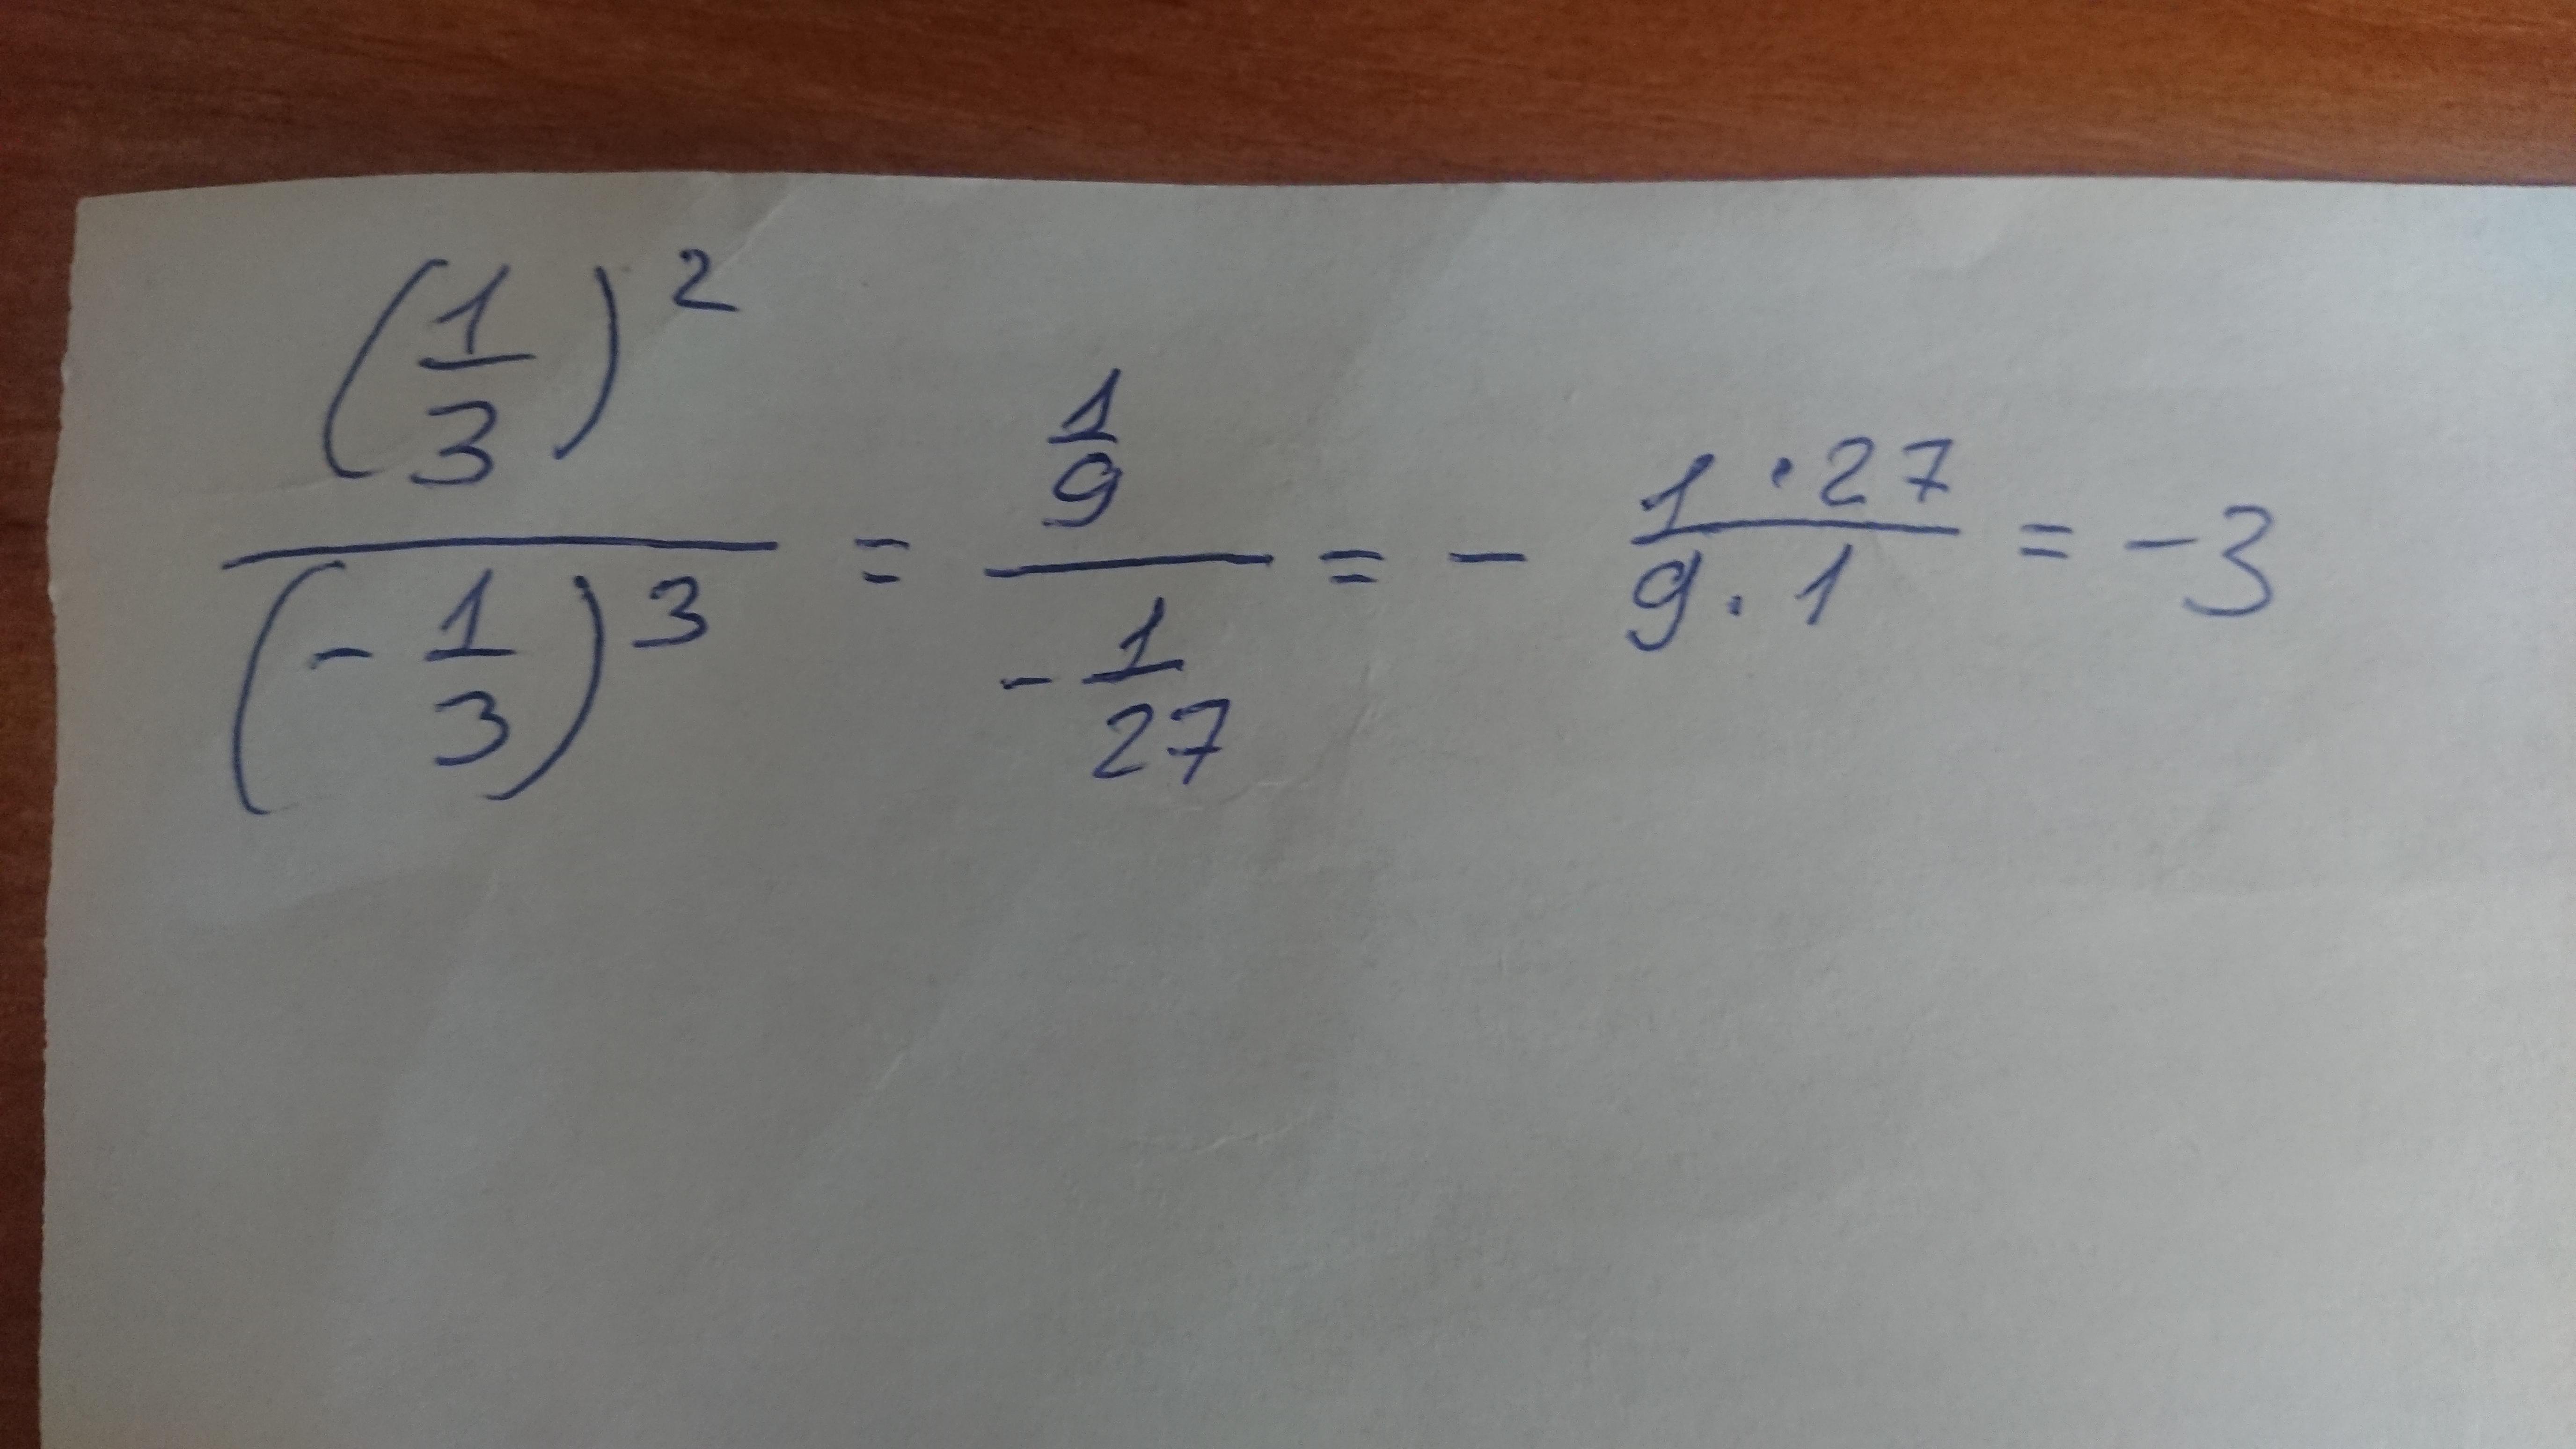 (1/3)² / (-1/3)³ = 1/9 / -1/27 = - 1·27 / 9·1 = -3